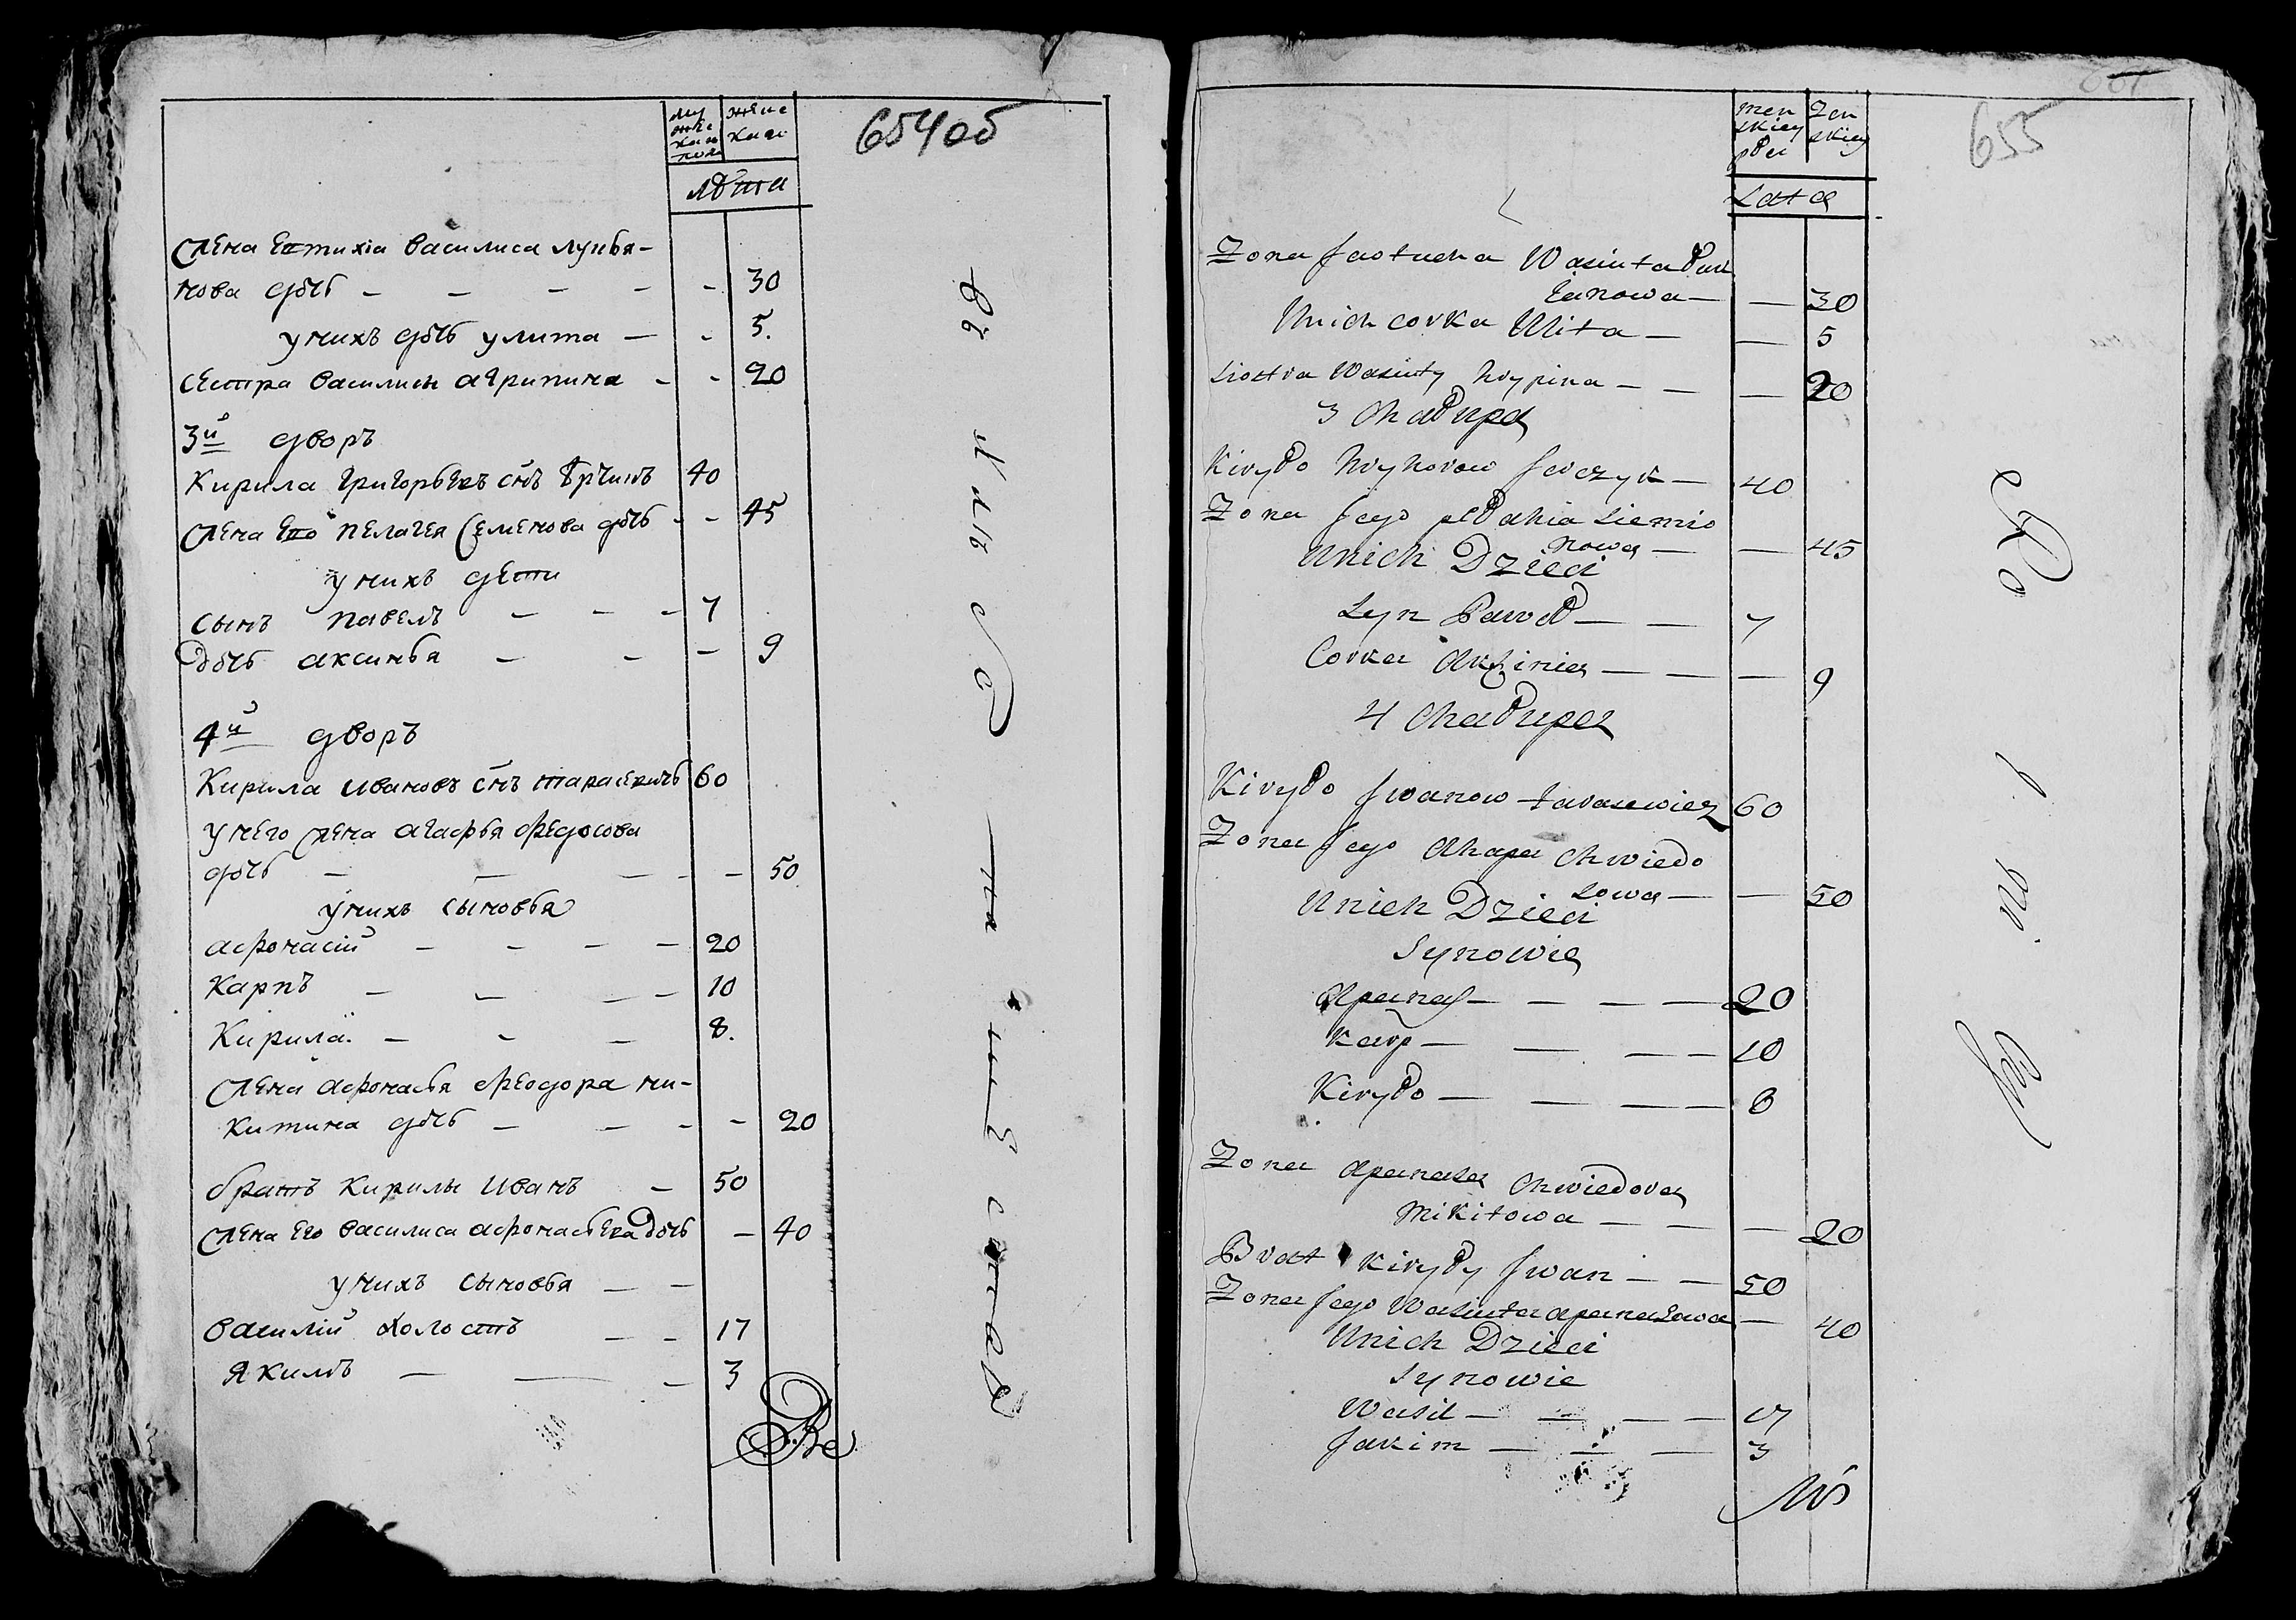 654об
мужеска пола
женска
лѣта
жена Евтихіа василиса лукья-
нова дочь - - - - - 30
у нихъ дочь улита - - 5.
сестра василисы агрипина - - 20
3й дворъ
Кирила григорьевъ снъ 40
жена Его пелагея Семенова дочь - - 45
у нихъ дети
сынъ павелъ - - - 7
дочь аксинья - - - 9
4й дворъ
Кирила ивановъ снъ тарасевичь 60
у него жена агафья федосова
дочь - - - - - 50
у нихъ сыновья
афонасіи - - - - 20
Карпъ - - - - 10
Кирила. - - - 8.
жена афонасья феодора ни-
китина дочь - - - - 20
братъ кирилы иванъ - 50
жена его василиса афонасьева дочь - 40
у нихъ сыновья - -
василіи холостъ - - 17
якимъ - - - 3
655
men skiey płci
Zen skiey
Lata
Zona Jastucha Wasiuta Łuk
ianowa - - 30
Unich corka Ulita - - 5
Siostra Wasiuty Hrypina - - - 20
3 Chałupa
Kiryło Hryhorow Szewczyk - 40
Zona Jego pełahia Siemio
nowa - - 45
Unich Dzieci
Syn Paweł - - 7
Corka Aksinia - - - 9
4 Chałupa
Kiryło Iwanow tarasewicz 60
Zona Jego Ahapa Chwiedo
sowa - - 50
Unich Dzieci
Synowie
Apanas - - - - 20
Karp - - - - 10
Kiryło - - - - 8
Zona Apanasa Chwiedora
Mikitowa - - - 20
Brat Kiryły Iwan - - 50
Zona Jego Wasiuta apanasowa - 40
Unich Dzieci
Synowie
Wasil - - - - 17
Jakim - - - 3